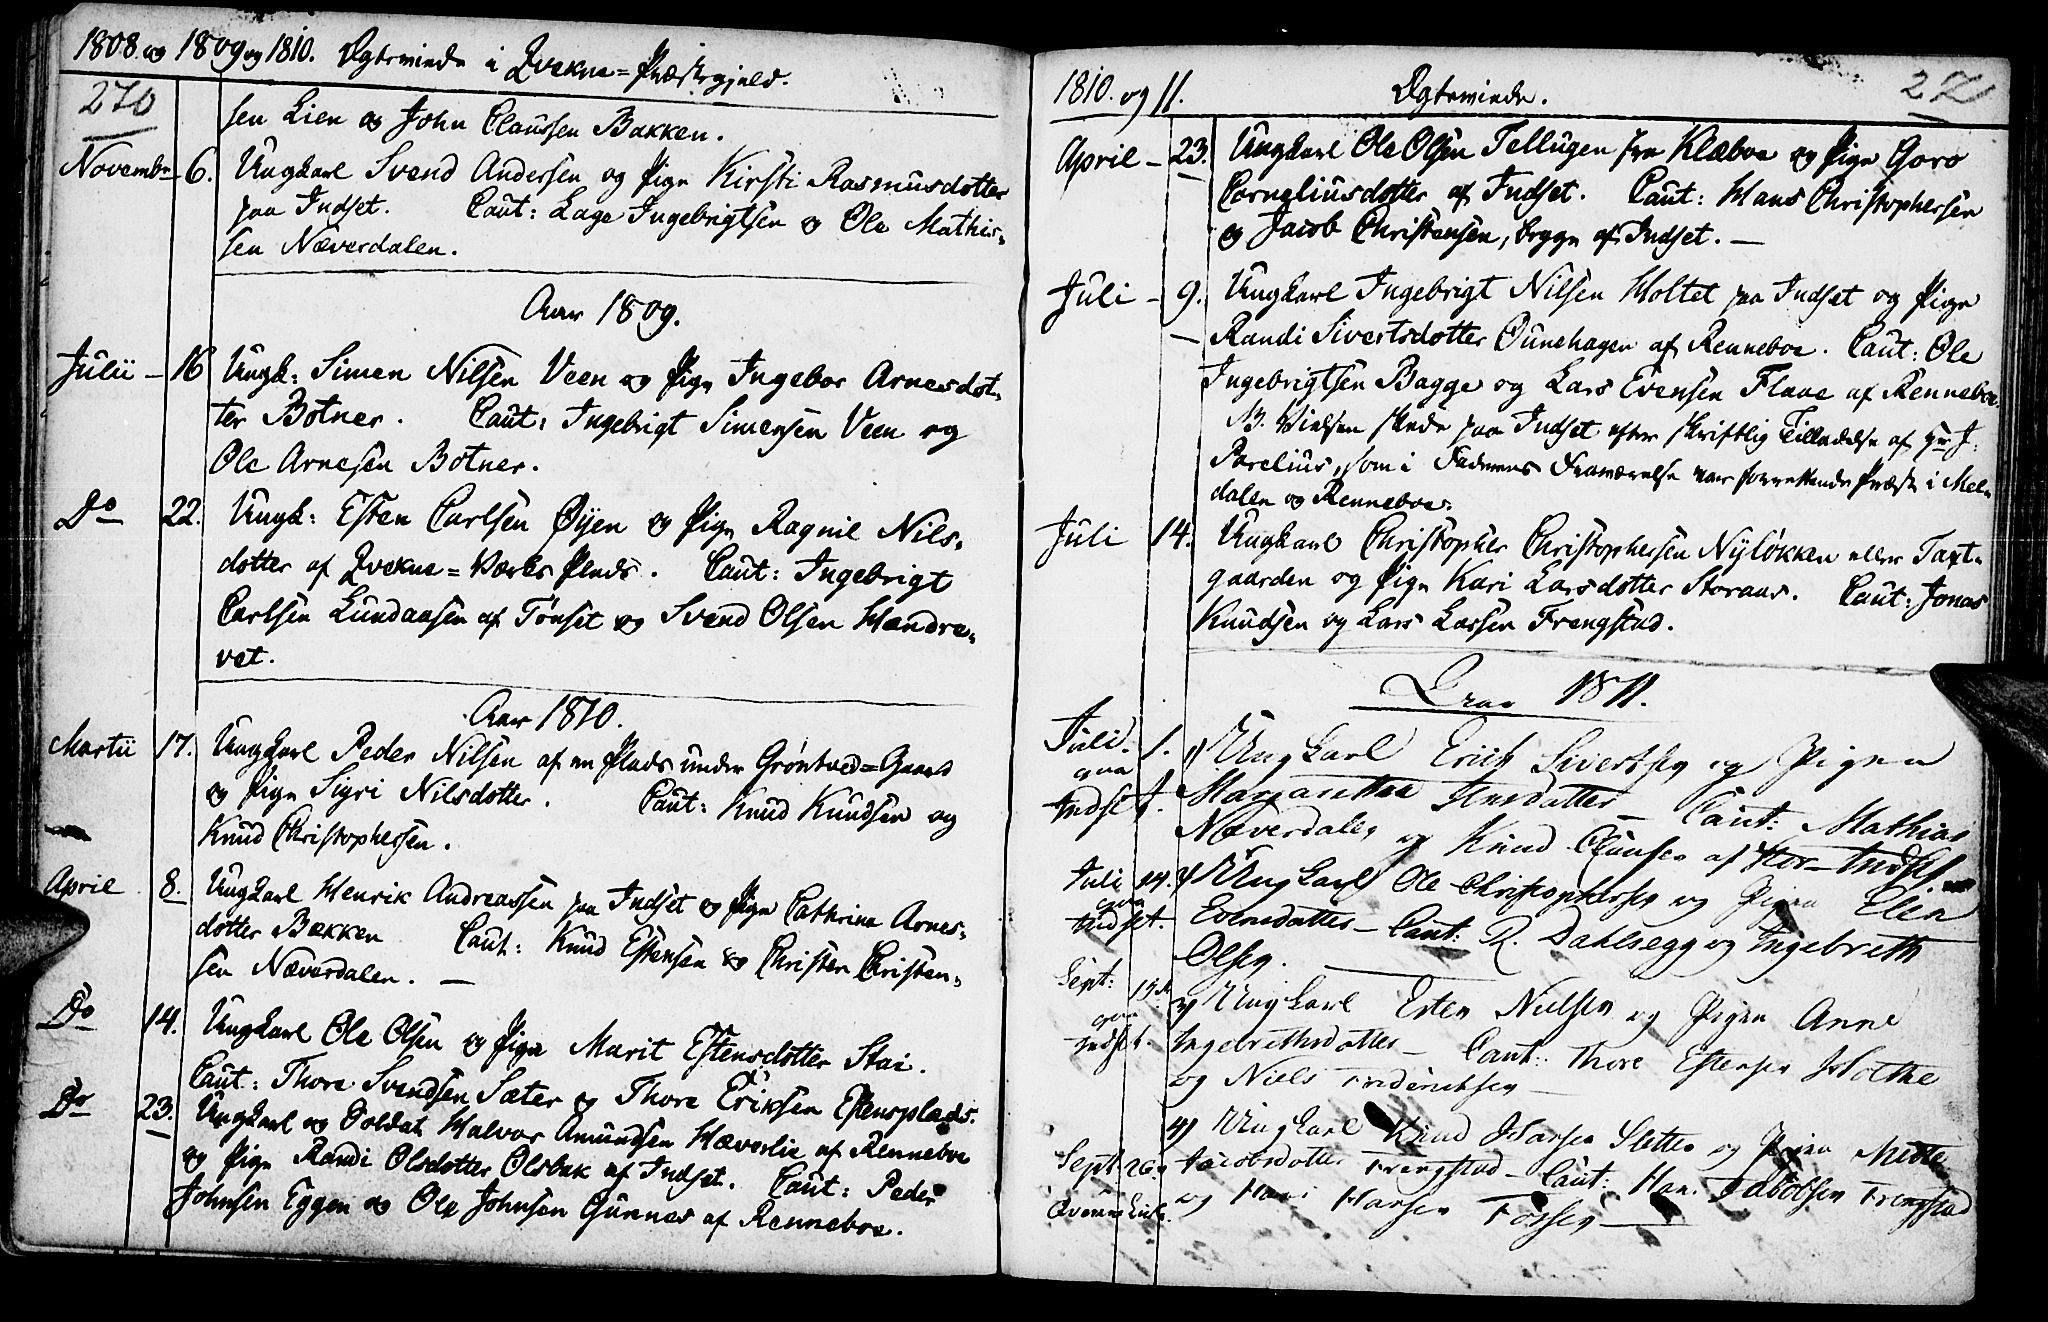 1808 og 1809 og 1810. Ægteviede i Qvekne=Præstegield.
270
sen Lien og John Claussen Bakken.
Novembr 6. Ungkarl Svend Andersen og Pige Kirsti Rasmusdotter
paa Indset. Caut: Lage Ingebrigtsen og Ole Mathis-
sen Næverdalen.
Aar 1809.
Julii – 16 Ungk: Simen Nilsen Veen og Pige Ingebor Arnesdot-
ter Botner. Caut: Ingebrigt Simensen Veen og
Ole Arnesen Botner.
Do 22. Ungk: Esten Carlsen Øyen og Pige Ragnil Nils-
dotter af Qvekne=Værks Plads. Caut: Ingebrigt
Carlsen Lundaasen af Tønset og Svend Olsen Hændre-
vet.
Aar 1810.
Martii 17. Ungkarl Peder Nilsen af en Plads under Grøntved=Gaard
og Pige Sigri Nilsdotter. Caut: Knud Knudsen og
Knud Christophersen.
April 8. Ungkarl Henrik Andreassen paa Indset og Pige Cathrina Arnes-
dotter Bækken Caut: Knud Estensen og Christen Christen-
sen Næverdalen. –
Do 14. Ungkarl Ole Olsen og Pige Marit Estensdotter Stai.
Caut: Thore Svendsen Sæter og Thore Eriksen Estensplads.
Do 23. Ungkarl og Soldat Halvor Amundsen Hæverlie af Renneboe
og Pige Randi Olsdotter Olsbak af Indset. Caut: Peder
Johnsen Eggen og Ole Johnsen Gunnes af Renneboe.
1810. og 11. Ægteviede. 271
April – 23. Ungkarl Ole Olsen Tellugen fra Klæboe og Pige Goro
Corneliusdotter af Indset. Caut: Hans Christophersen
og Jacob Christensen, begge af Indset. –
Juli – 9. Ungkarl Ingebrigt Nilsen Holtet paa Indset og Pige
– Randi Sivertsdotter Gunehagen af Renneboe. Caut: Ole
Ingebrigtsen Bagge og Lars Evensen Flaae af Renneboe.
B. Vielsen skede paa Indset efter skriftlig Tilladelse af Hr J.
Parelius, som i Faderens Fraværelse var forrettende Præst i Mel-
dalen og Renneboe.
Juli 14. Ungkarl Christopher Christophersen Nyløkken eller Taxt-
gaarden og Pige Kari Larsdotter Storaas. Caut: Jonas
Knudsen og Lars Larsen Frengstad.
Aar 1811.
Juli. 1. 1) Ungkarl Erich Sivertsen og Pigen
paa
Indset. Margarettha Jensdatter – Caut: Mathias
Næverdalen og Knud Clausen af Stor-Indset.
Juli 14. 2) Ungkarl Ole Christophersen og Pigen Elen
paa
Indset. Evensdatter – Caut: R. Dahlsegg og Ingebreth
Olsen.
Sept: 15. 3) Ungkarl Esten Nielsen og Pigen Anne
paa
Indset. Ingebrethsdatter – Caut: Thore Estensen Hothe
og Niels Frederichsen –
4) Ungkarl Knud Larsen Sletten og Pigen Mette
Sept 26. Jacobsdatter Frengstad – Caut: Han. Jacobsen Frengstad
Qvenne Kirke. og Hans Hansen Fossen –